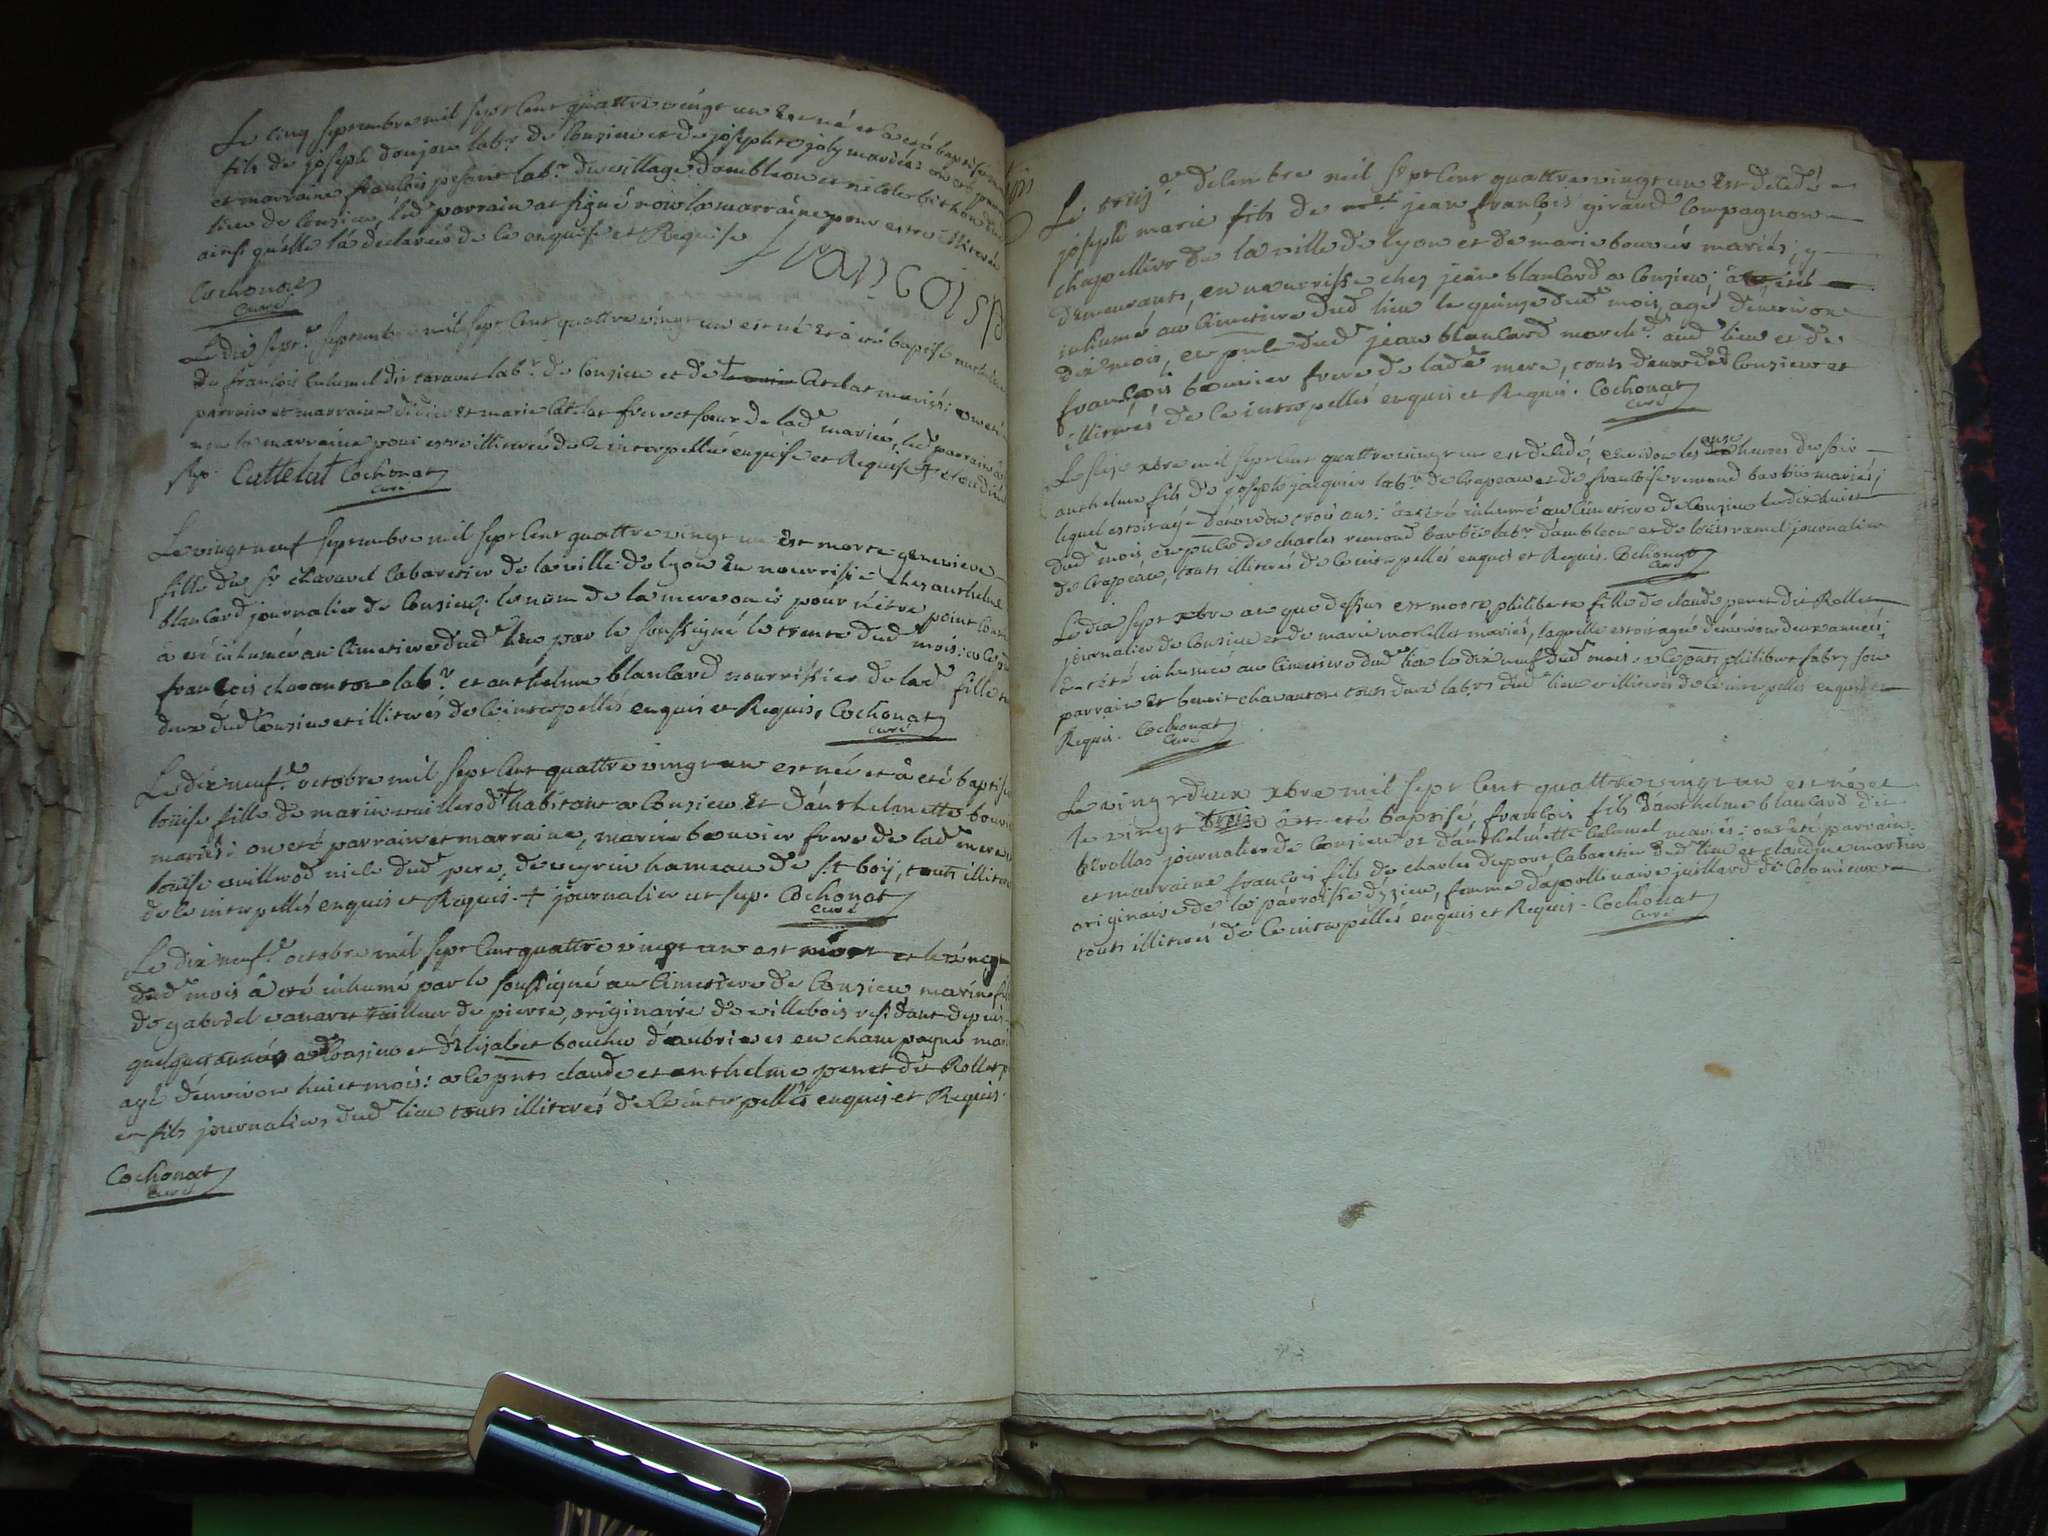 Le cinq septembre mil sept cent quattre vingt un est né et a eté baptisé
fils de joseph donjon labr de Consieu et de josephte joly mariés: ont eté
et marraine francois labr du village dambleon et nicolle bithon dud
lieu de Consieu, led parrain at signé non la marraine pour estre illiterée
ainsi quelle la declarée de ce enquise et Requise
francois
Cochonat
Curé
Le dix sept septembre mil sept cent quattre vingt un est né et à eté baptisé anthelme
du francois Calamel dit labr de Consieu et de + Catelat mariés: ont eté
parrain et marraine didier et marie Catelat frere et soeur de lad mariée, led parrain a
non la marraine pour estre illiterée de ce interpellée enquise et Requise + claudine
sup. Cattelat Cochonat
Curé
Le vingt neuf septembre mil sept cent quattre vingt un est morte genevieve
fille du sr charavel Cabaretier de la ville de lyon en nourrisse ches anthelme
blancard journalier de Consieu; le nom de la mere omis pour nêtre point
à eté inhumée au Cimetiere dud lieu par le soussigné le trente dud mois:
francois chavanton labr et anthelme blancard nourrissier de lad fille
deux dud Consieu et illiterés de ce interpellés enquis et Requis. Cochonat
Curé
Le dix neuf octobre mil sept cent quattre vingt un est née et à eté baptisée
loüise fille de marin + habitant a Consieu et danthelmette
mariés: ont eté parrain et marraine, marin bouvier frere de lad mere
loüise niece dud pere, de veyrin hameau de st boÿ, touts illiterés
de ce interpellés enquis et Requis. + journalier ut sup. Cochonat
Curé
Le dix neuf octobre mil sept cent quattre vingt un est mort et le vingt
dud mois à eté inhumé par le soussigné au Cimetiere de Consieu marin
de gabriel tailleur de pierre, originaire de villebois residant depuis
quelques années a Consieu et delisabet bouchu en champagne
agé denviron huict mois: claude et anthelme penet dit Rollet
et fils journaliers dud lieu touts illiterés de ce interpellés enquis et Requis.
Cochonat
Curé
Le decembre mil sept cent quattre vingt un est decedé
joseph marie fils de jean francois giraud Compagnon
chapellier de la ville de lyon et de marie bouvier mariés; y
demeurants, en nourrisse ches jean blancard a Consieu;
inhumé au Cimetiere dud lieu le quinze dud mois, agé denviron
dix mois, en dud jean blancard aud lieu et de
francois bouvier frere de lade mere, touts deux dud Consieu et
illiterés de ce interpellés enquis et Requis. Cochonat
Curé
Le xbre mil sept cent quattre vingt un est decedé, environ les onze heures du soir
anthelme fils de joseph jacquier labr de Crapeau et de francoise remond barbié mariés;
lequel estoit agé denviron trois ans: à eté inhumé au Cimetiere de Consieu le dix huict
dud mois, en de charles remond barbié labr dambleon et de loüis ramel journalier
de Crapeau, touts illiterés de ce interpellés enquis et Requis. Cochonat
Curé
Le dix sept xbre an que dessus est morte philiberte fille de claude penet dit Rollet
journalier de Consieu et de marie morellet mariés, laquelle estoit agée denviron deux années;
a eté inhumée au Cimetiere dud lieu le dix neuf dud mois, philibert fabry son
parrain et benoit chavanton touts deux labrs dud lieu et illiterés de ce interpellés enquis et
Requis. Cochonat
Curé
Le vingt deux xbre mil sept cent quattre vingt un est né et
le vingt trois a eté baptisé, francois fils danthelme blancard dit
journalier de Consieu et danthelmette Calamel mariés: ont eté parrain
et marraine francois fils de charles dupont Cabaretier dud lieu et claudine martin
originaire de la parroisse femme dapollinaire juillard de Colomieux
touts illiterés de ce interpellés enquis et Requis. Cochonat
Curé